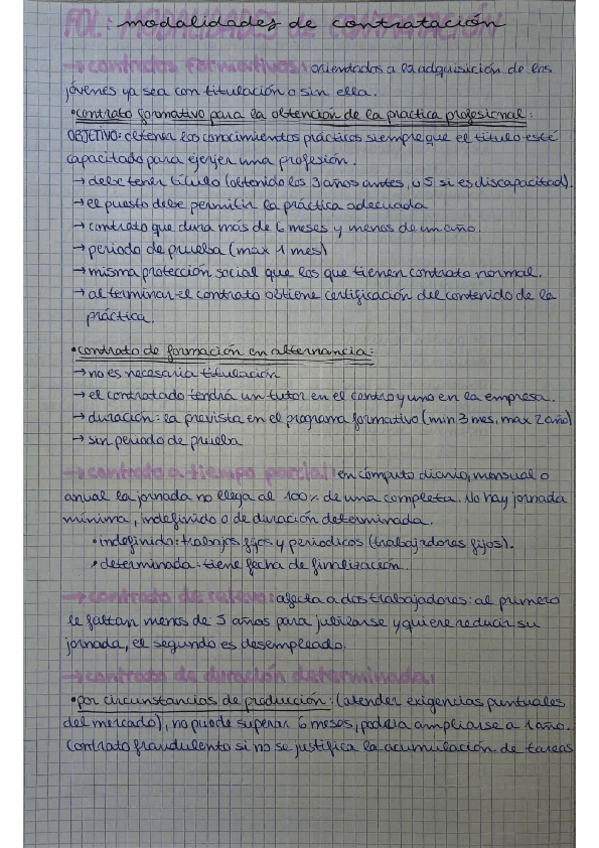 FOL: MODALIDADES DE CONTRATACIÓN
modalidades de contratación
→ contratos formativos: orientados a la adquisición de los
jóvenes ya sea con titulación o sin ella.
• contrato formativo para la obtención de la practica profesional:
OBJETIVO: obtener los conocimientos prácticos siempre que el titulo esté
capacitado para ejerjer una profesión.
→ debe tener título (obtenido los 3 años antes, o 5 si es discapacitad).
→ el puesto debe permitir la práctica adecuada
→ contrato que dura más de 6 meses y menos de un año.
→ periodo de prueba (max 1 mes)
→ misma protección social que los que tienen contrato normal.
→ al terminar el contrato obtiene certificación del contenido de la
práctica.
• contrato de formación en alternancia:
→ no es necesaria titulación
→ el contratado tendrá un tutor en el centro y uno en la empresa.
→ duración: la prevista en el programa formativo (min 3 mes, max 2 año)
→ sin periodo de prueba
→ contrato a tiempo parcial: en cómputo diario, mensual o
anual la jornada no llega al 100% de una completa. No hay jornada
mínima, indefinido o de duración determinada.
• indefinido: trabajos fijos y periodicos (trabajadores fijos).
• determinada: tiene fecha de finalización.
→ contrato de relevo: afecta a dos trabajadores: al primero
le faltan menos de 5 años para jubilarse y quiere reducir su
jornada, el segundo es desempleado.
→ contrato de duración determinada:
• por circunstancias de producción: (atender exigencias puntuales
del mercado), no puede superar 6 meses, podría ampliarse a 1 año.
Contrato fraudulento si no se justifica la acumulación de tareas